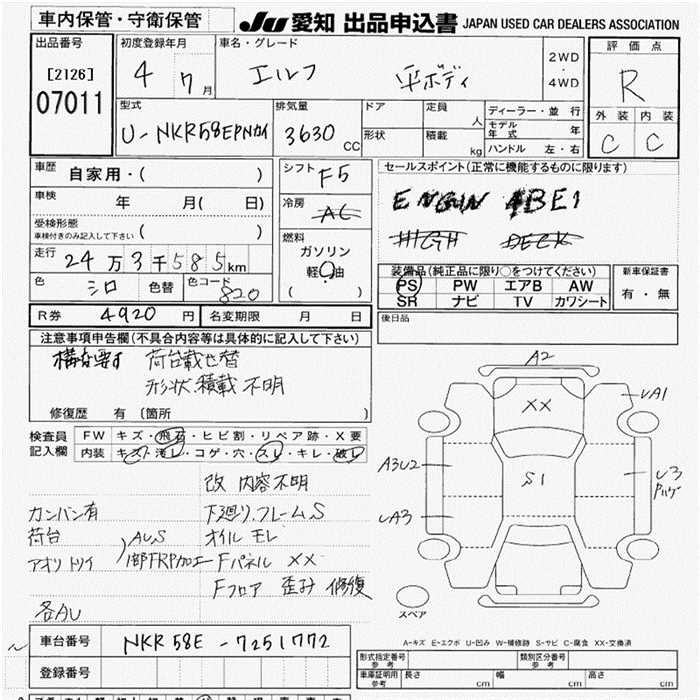 車内保管・守衛保管
JU 愛知 出品申込書 JAPAN USED CAR DEALERS ASSOCIATION
出品番号
[2126]
07011
初度登録年月
4 7月
車名・グレード
エルフ 平ボディ
2WD・4WD
評価点
R
外装 内装
C C
型式
U-NKR58EPNカイ
排気量
3630 CC
ドア
形状
定員 人
積載 kg
ディーラー・並行
モデル年式 年
ハンドル 左・右
車歴 自家用・( )
車検 年 月( 日)
受検形態
車検付きのみ記入して下さい ( )
走行 24万3千585km
色 シロ 色替 色コード 820
シフト F5
冷房 AC
燃料
ガソリン
軽油
( )
セールスポイント(正常に機能するものに限ります)
ENGIN 4BE1
HIGH DECK
装備品(純正品に限り○をつけてください)
PS PW エアB AW
SR ナビ TV カワシート
新車保証書
有・無
R券 4920円 名変期限 月 日
後日品
注意事項申告欄(不具合内容等は具体的に記入して下さい)
構変要す 荷台載せ替
形状.積載 不明
修復歴 有 〔箇所 〕
検査員記入欄
FW キズ・飛石・ヒビ割・リペア跡・X要
内装 キズ・汚レ・コゲ・穴・スレ・キレ・破レ
改 内容不明
カンバン有 下廻り.フレームS
荷台 AUS オイル モレ
アオリ トリイ 1部FRP加工 Fパネル XX
Fフロア 歪み 修復
各AU
A2
XX
UA1
A3U2
S1
U3
UA3
スペア
A-キズ E-エクボ U-凹み W-補修跡 S-サビ C-腐食 XX-交換済
車台番号 NKR58E-7251772
登録番号
形式指定番号 参考
類別区分番号 参考
車庫証明用 参考 長さ cm 幅 cm 高さ cm